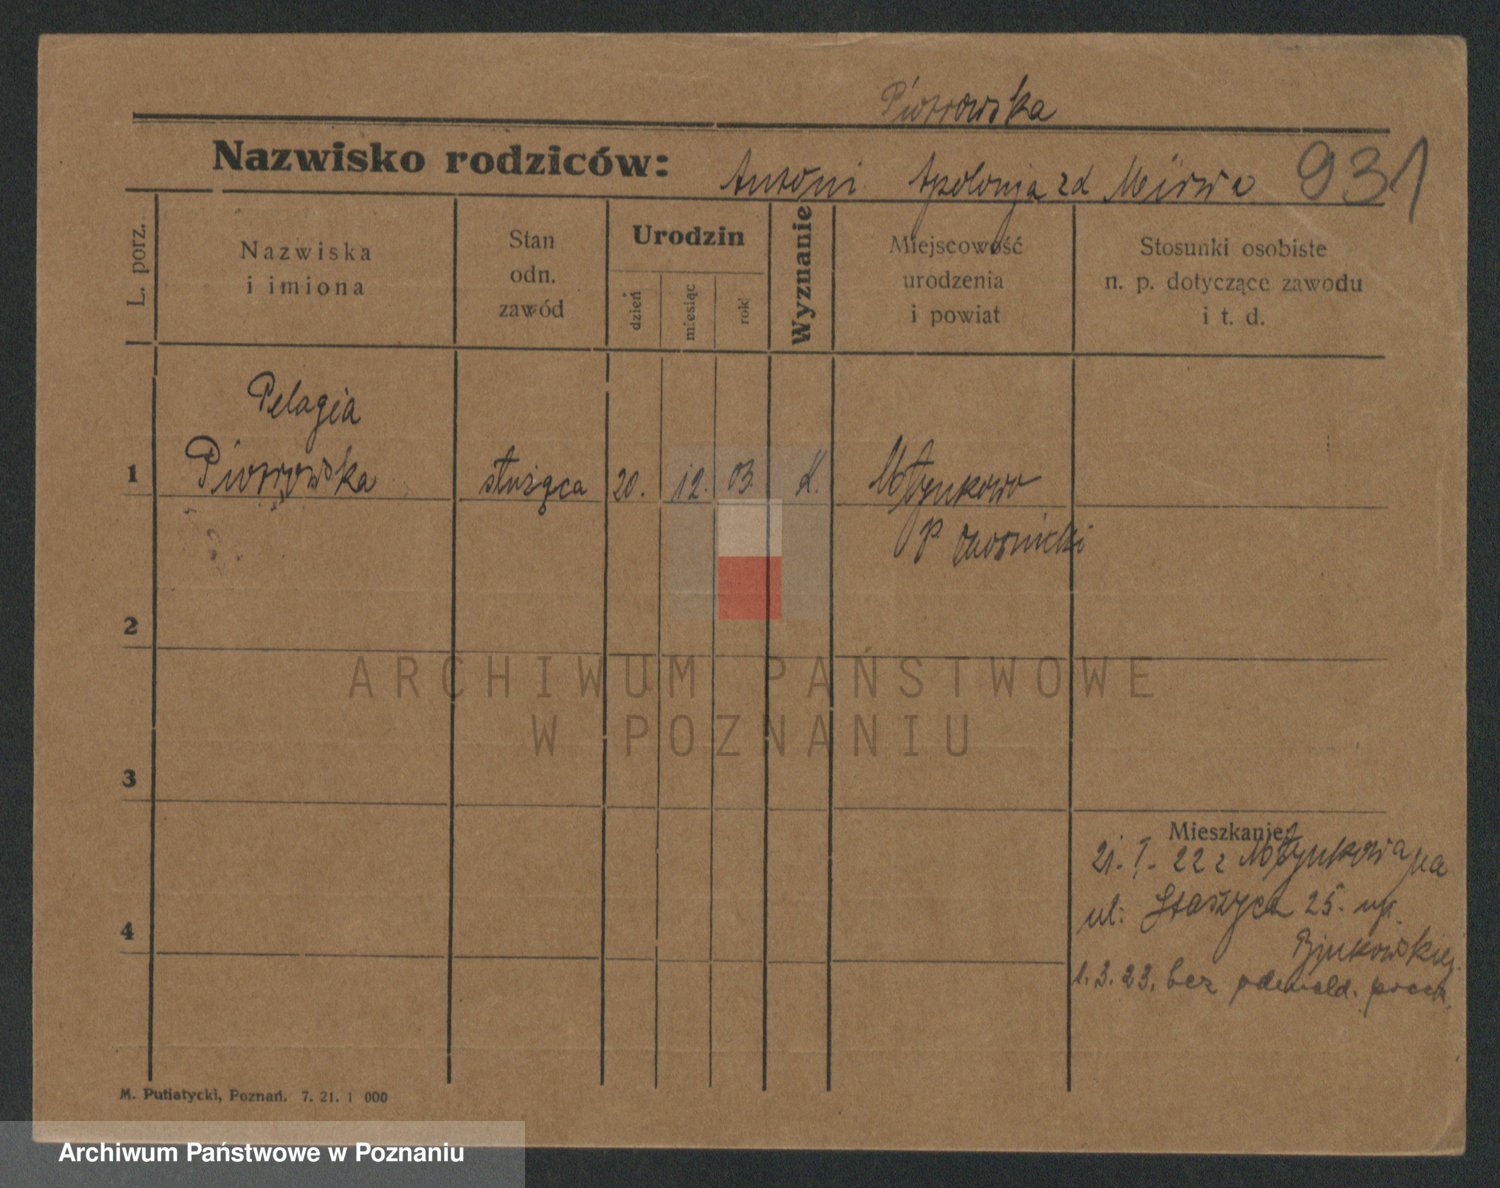 Piotrowska
Nazwisko rodziców: Antoni Apolonja zd 931
L. porz.
Nazwiska
i imiona
Stan
odn.
zawód
Urodzin
dzień
miesiąc
rok
Wyznanie
Miejscowość
urodzenia
i powiat
Stosunki osobiste
n. p. dotyczące zawodu
i t. d.
Pelagia
1 Piotrowska służąca 20. 12. 03. K. Młynkowo
P Obornicki
2
ARCHIWUM PAŃSTWOWE
W POZNANIU
3
Mieszkanie
21. I. 22 z Młynkowa na
ul: Staszyca 25.
4
1.3.23. bez
M. Putiatycki, Poznań. 7. 21. 1 000
Archiwum Państwowe w Poznaniu